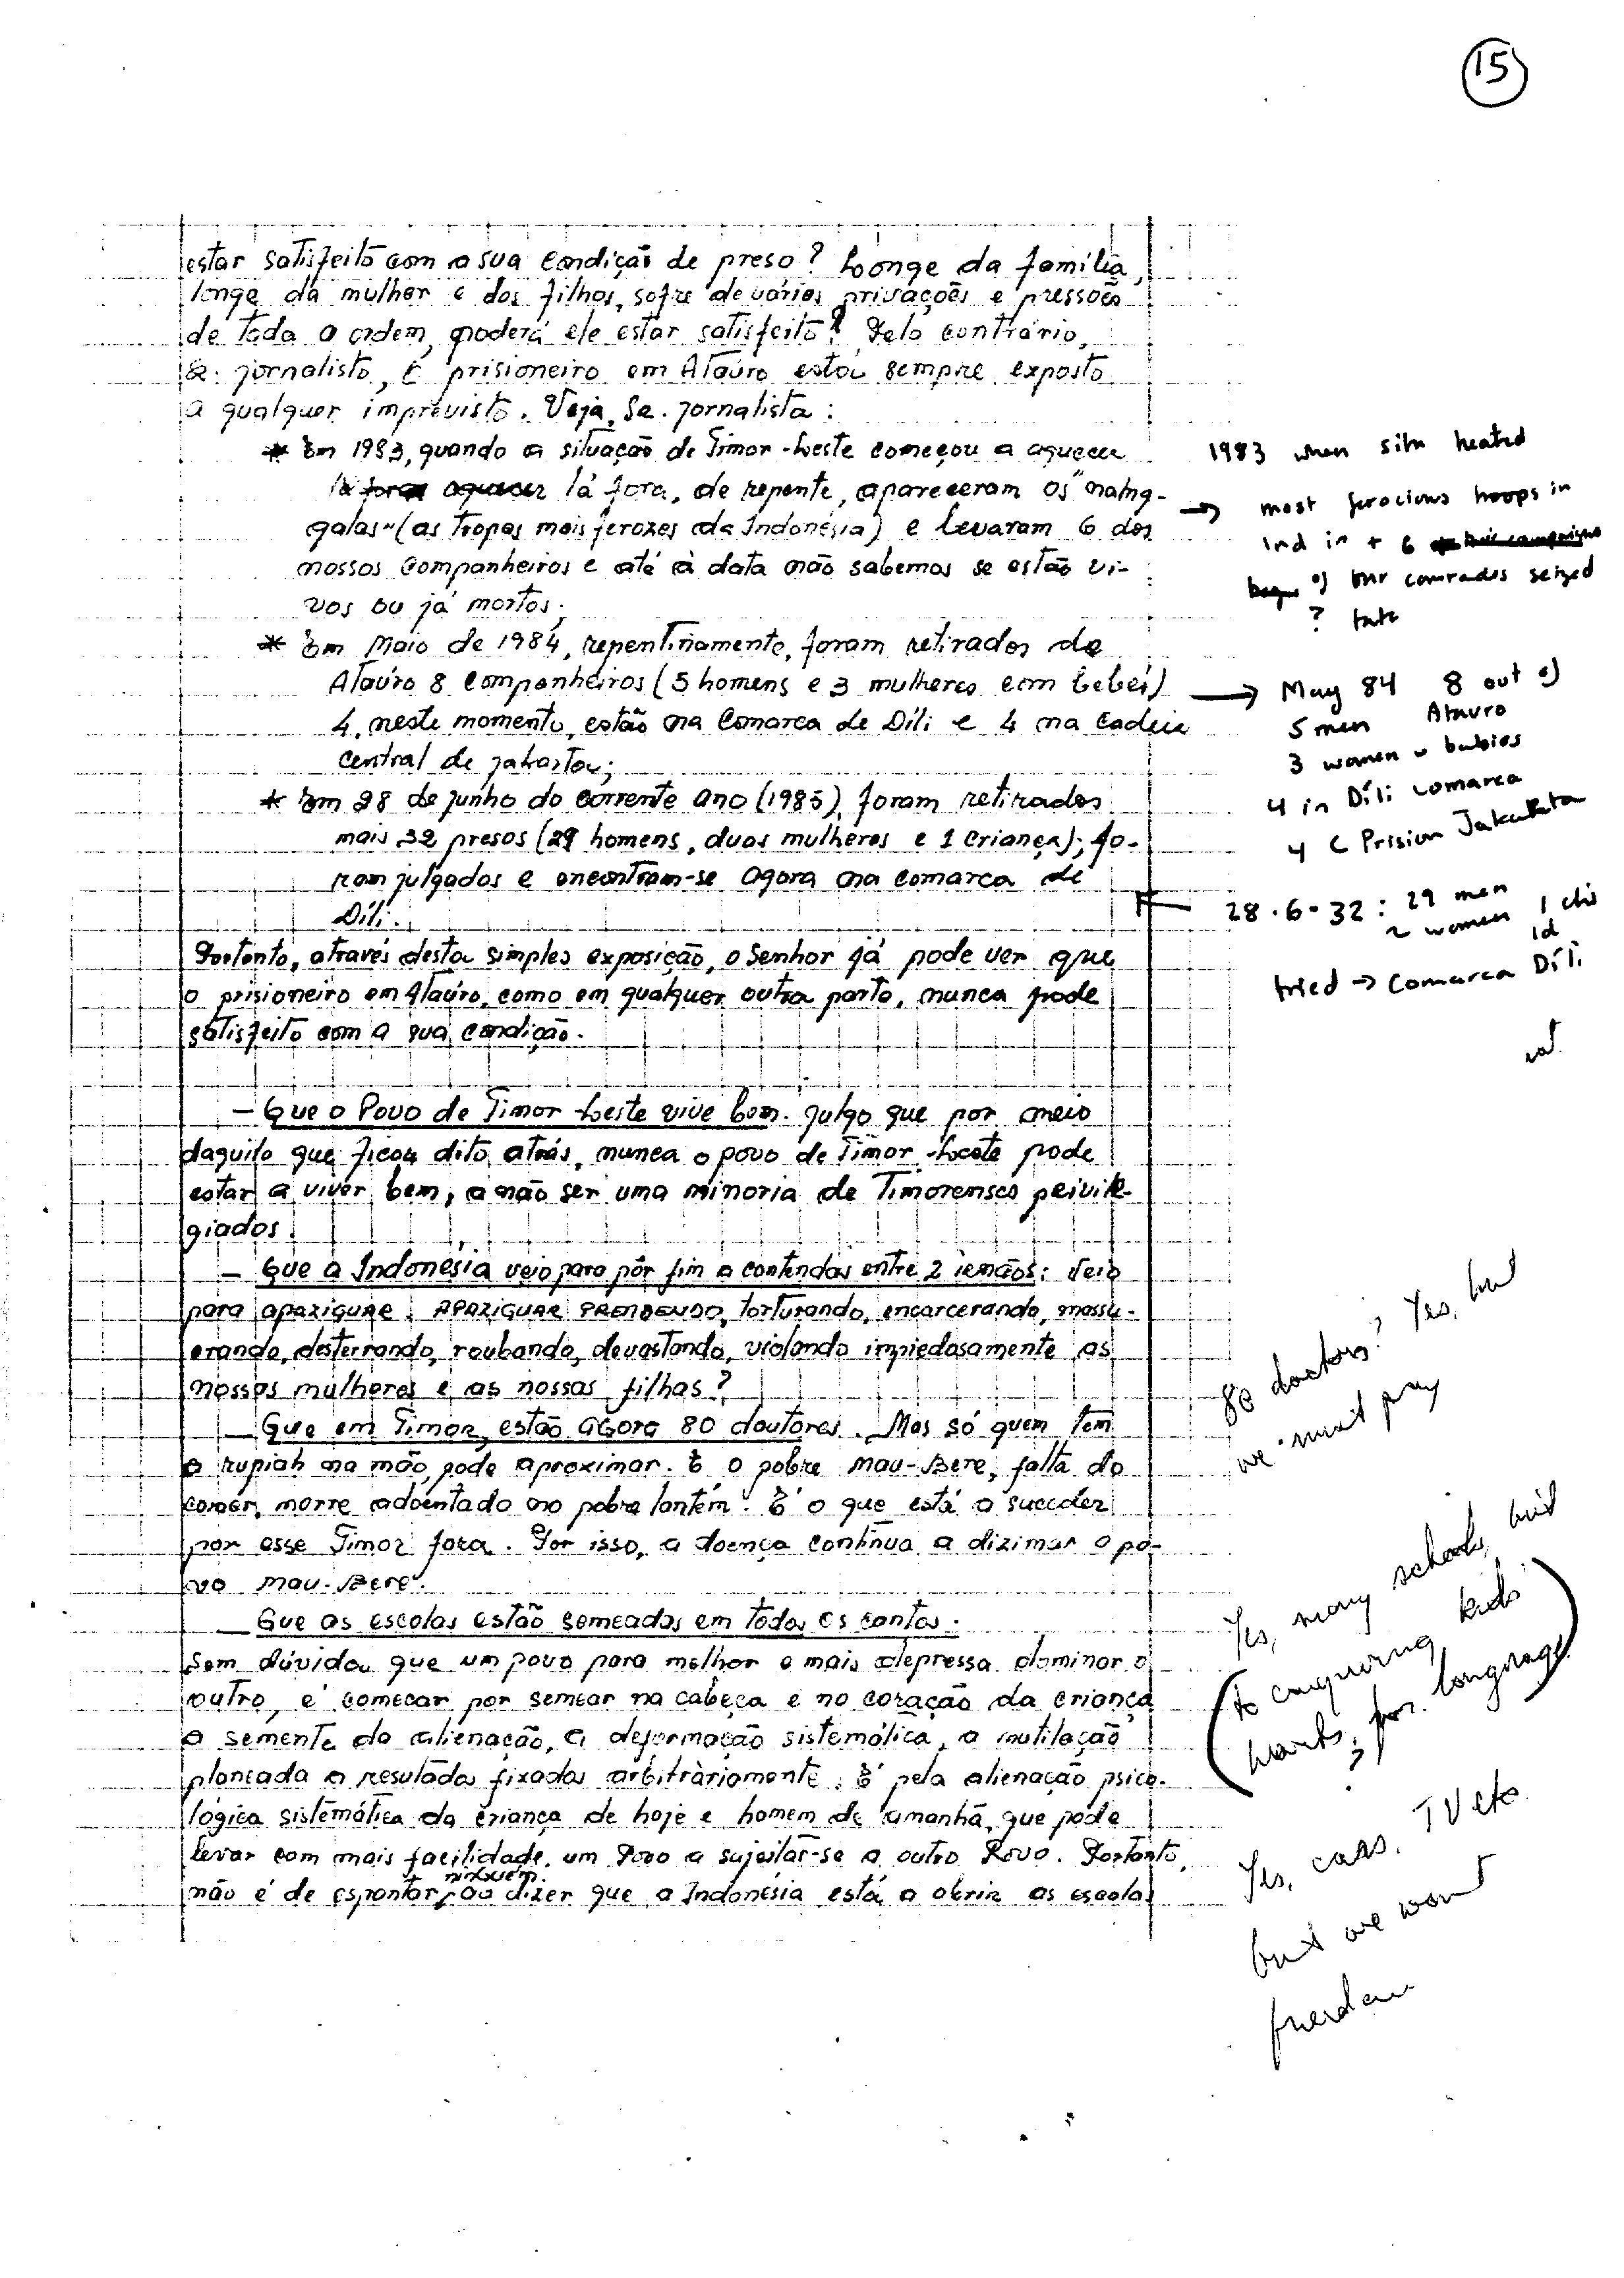 15
estar satisfeito com a sua condição de preso? Longe da família,
longe da mulher e dos filhos, sofre de várias privações e pressões
de toda a ordem, poderá ele estar satisfeito? Pelo contrário,
Sr. jornalista, o prisioneiro em Ataúro está sempre exposto
a qualquer imprevisto. Veja, Sr. jornalista:
* Em 1983, quando a situação de Timor-Leste começou a aquecer
lá fora, de repente, apareceram os "nang-
galas" (as tropas mais ferozes da Indonésia) e levaram 6 dos
nossos companheiros e até à data não sabemos se estão vi-
vos ou já mortos;
* Em Maio de 1984, repentinamente, foram retirados de
Ataúro 8 companheiros (5 homens e 3 mulheres com bebés)
4, neste momento, estão na Comarca de Díli e 4 na cadeia
central de Jakarta;
* Em 28 de junho do corrente ano (1985), foram retirados
mais 32 presos (29 homens, duas mulheres e 1 criança); fo-
ram julgados e encontram-se agora na comarca de
Díli.
Portanto, através desta simples exposição, o Senhor já pode ver que
o prisioneiro em Ataúro, como em qualquer outra parte, nunca pode
satisfeito com a sua condição.
— Que o Povo de Timor-Leste vive bem. Julgo que por meio
daquilo que ficou dito atrás, nunca o povo de Timor-Leste pode
estar a viver bem, a não ser uma minoria de Timorenses privile-
giados.
— Que a Indonésia veio para pôr fim a contendas entre 2 irmãos: Veio
para apaziguar. APAZIGUAR PRENDENDO, torturando, encarcerando, massa-
crando, desterrando, roubando, devastando, violando impiedosamente as
nossas mulheres e as nossas filhas?
— Que em Timor, estão agora 80 doutores. Mas só quem tem
a rupiah na mão, pode aproximar. E o pobre Mau-Bere, falta do
comer, morre adoentado no pobre lantém. É o que está a suceder
por esse Timor fora. Por isso, a doença continua a dizimar o po-
vo Mau-Bere.
— Que as escolas estão semeadas em todos os cantos.
Sem dúvida que um povo para melhor e mais depressa dominar o
outro, é começar por semear na cabeça e no coração da criança
a semente da alienação, a deformação sistemática, a mutilação
planeada a fixados arbitràriamente; É pela alienação psico-
lógica sistemática da criança de hoje e homem de amanhã, que pode
levar com mais facilidade, um Povo a sujeitar-se a outro Povo. Portanto,
ninguém
não é de espantar, ao dizer que a Indonésia está a abrir as escolas
1983 when sitn heated
→ most ferocious troops in
Ind in + 6
of our comrades seized
? fate
→ May 84 8 out of
5 men Atauro
3 women w babies
4 in Díli comarca
4 C Prision Jakarta
28.6.32: 29 men
2 women 1 chi
ld
tried → Comarca Díli
80 doctors? Yes, but
we must pay
Yes, many schools, but
to conquering kids
hearts, for language
?
Yes, cars, TV etc
but we want
freedom